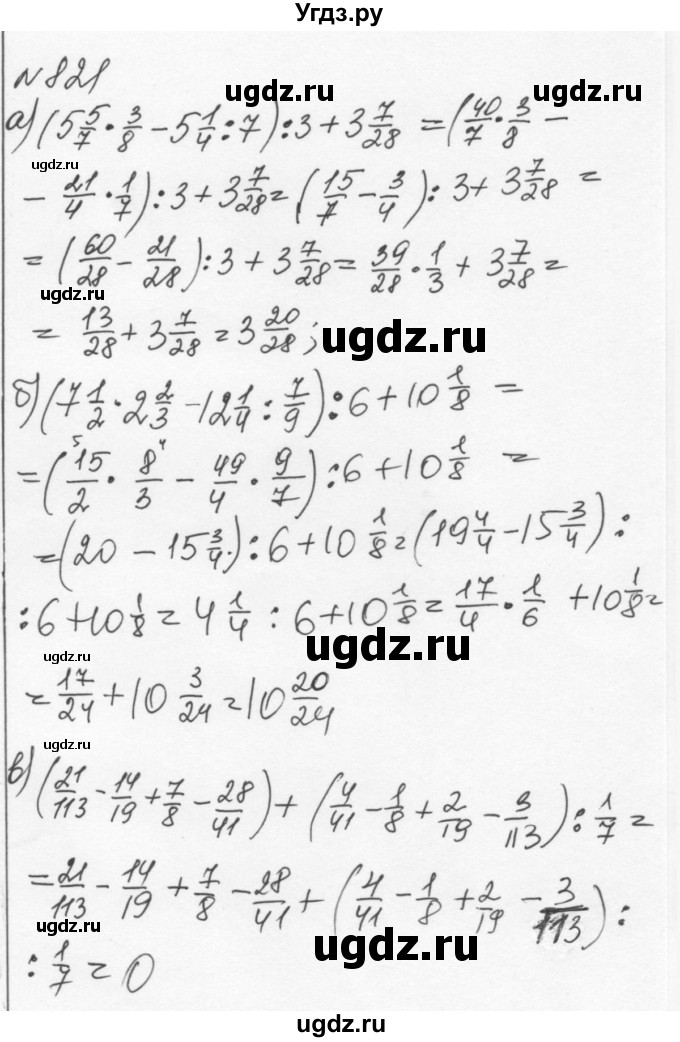 Угдз.ру
№821
ugdz.ru
а) (5 5/7 · 3/8 − 5 1/4 : 7) : 3 + 3 7/28 = (40/7 · 3/8 −
ugdz.ru
− 21/4 · 1/7) : 3 + 3 7/28 = (15/7 − 3/4) : 3 + 3 7/28 =
ugdz.ru
= (60/28 − 21/28) : 3 + 3 7/28 = 39/28 · 1/3 + 3 7/28 =
ugdz.ru
= 13/28 + 3 7/28 = 3 20/28;
ugdz.ru
б) (7 1/2 · 2 2/3 − 12 1/4 : 7/9) : 6 + 10 1/8 =
ugdz.ru
= (15/2 · 8/3 − 49/4 · 9/7) : 6 + 10 1/8 =
5 4
ugdz.ru
= (20 − 15 3/4) : 6 + 10 1/8 = (19 4/4 − 15 3/4) :
: 6 + 10 1/8 = 4 1/4 : 6 + 10 1/8 = 17/4 · 1/6 + 10 1/8 =
ugdz.ru
ugdz.ru
= 17/24 + 10 3/24 = 10 20/24
ugdz.ru
в) (21/113 − 14/19 + 7/8 − 28/41) + (4/41 − 1/8 + 2/19 − 3/113) : 1/7 =
ugdz.ru
= 21/113 − 14/19 + 7/8 − 28/41 + (4/41 − 1/8 + 2/19 − 3/113) :
ugdz.ru
ugdz.ru
: 1/7 = 0
ugdz.ru
ugdz.ru